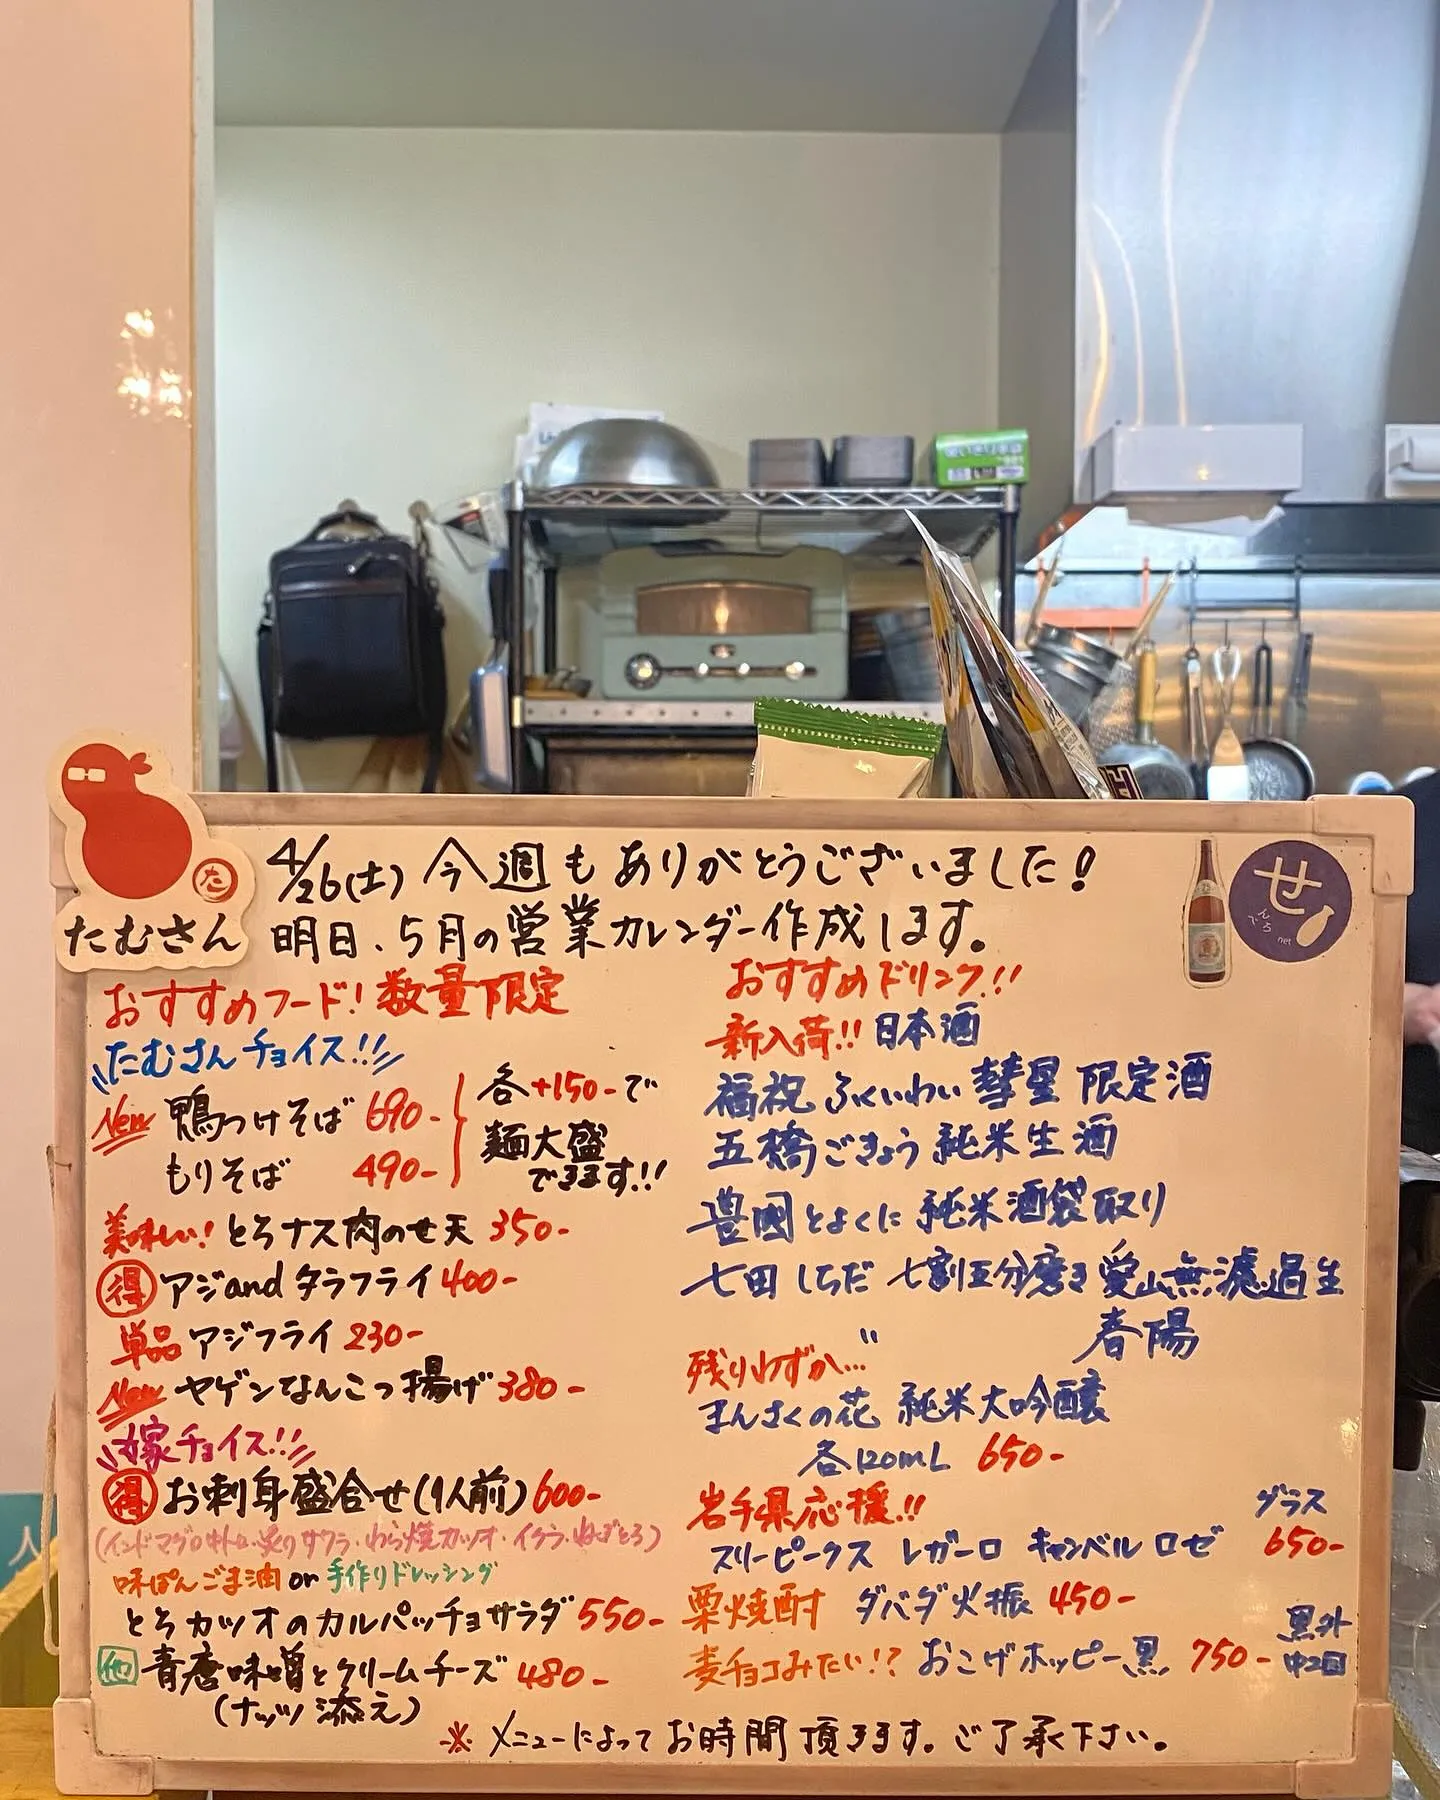 4/26(土) 今週もありがとうございました!
明日、5月の営業カレンダー作成します。
たむさん
た
せ
んべろ
net
おすすめフード!数量限定
たむさんチョイス!!
New 鴨つけそば 690-
もりそば 490-
各+150-で
麺大盛
できます!!
美味しい!とろナス肉のせ天 350-
得 アジandタラフライ 400-
単品 アジフライ 230-
New ヤゲンなんこつ揚げ 380-
嫁チョイス!!
得 お刺身盛合せ(1人前) 600-
(インドマグロ中トロ・炙りサワラ・わら焼カツオ・イクラ・ねぎとろ)
味ぽんごま油or手作りドレッシング
とろカツオのカルパッチョサラダ 550-
他 青唐味噌とクリームチーズ 480-
(ナッツ添え)
おすすめドリンク!!
新入荷!!日本酒
福祝 ふくいわい 彗星 限定酒
五橋 ごきょう 純米生酒
豊國 とよくに 純米酒袋取り
七田 しちだ 七割五分磨き 愛山無濾過生
〃 春陽
残りわずか…
まんさくの花 純米大吟醸
各120mL 650-
岩手県応援!!
グラス
スリーピークス レガーロ キャンベル ロゼ 650-
栗焼酎 ダバダ火振 450-
麦チョコみたい!? おこげホッピー黒 750-
黒外
中2回
※メニューによってお時間頂きます。ご了承下さい。